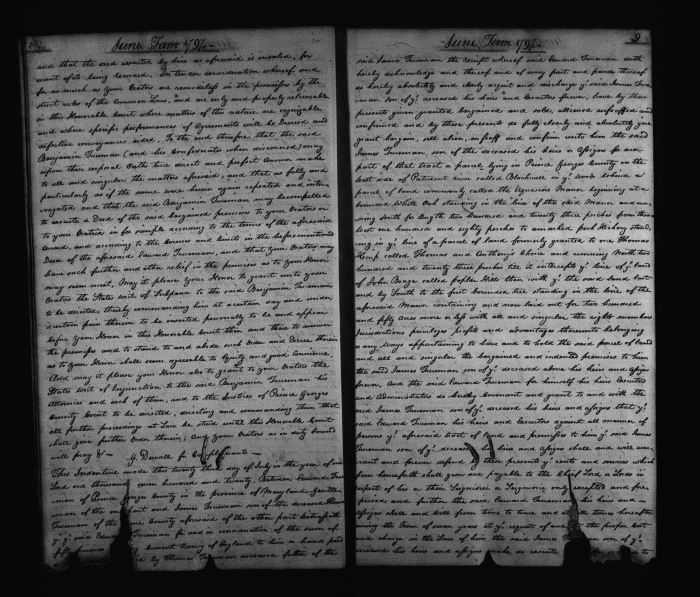 June Term 1797
and that the deed executed by him as aforesaid is invalid, for
want of its being recorded. In tender consideration whereof and
for as much as your Orators are remediless in the premises by the
strict rules of the Common Law, and are only and properly relievable
in this Honorable Court where matters of this nature are cognizable
and where specific performances of Agreements will be decreed and
defective conveyances aided. To the end therefore that the said
Benjamin Trueman (and his Confederates when discovered) may
upon their corporal Oaths true direct and perfect Answer make
to all and singular the matters aforesaid, and that as fully and
particularly as if the same were herein again repeated and inter
rogated and that the said Benjamin Trueman may be compelled
to execute a Deed of the said bargained premises to your Orators or
to your Oratrix in fee simple according to the terms of the aforesaid
Deed, and according to the courses and limits in the beforementioned
Deed of the aforesaid Edward Trueman, and that your Orators may
have such further and other relief in the premises as to your Honor
may seem meet, May it please your Honor to grant unto your
Orators the States writ of Subpœna to the said Benjamin Trueman
to be directed, thereby commanding him at a certain day and under
a certain pain therein to be inserted personally to be and appear
before your Honor in this Honorable Court then and there to answer
the premises and to stand to and abide such Order and Decree therein
as to your Honor shall seem agreeable to Equity and good Conscience.
And may it please your Honor also to grant to your Orators the
States writ of Injunction to the said Benjamin Trueman his
Attornies and each of them, and to the Justices of Prince Georges
County Court to be directed, directing and commanding them that
all further proceedings at Law be staid until this Honorable Court
shall give further Order therein; And your Orators as in duty bound
will pray &c — G. Duvall for Complainants —
This Indenture made this twenty day of July in the year of our
Lord one thousand seven hundred and twenty. Between Edward True
man of Prince Georges County in the province of Maryland Gentle
man of the one part and James Trueman son of the deceased
Trueman of the County aforesaid of the other part Witnesseth
yt ye said Edward Trueman for and in consideration of the sum of
fifty current money of England to him in hand paid
by Thomas Trueman deceased father of the
June Term 1797
9
said James Trueman the receipt whereof said Edward Trueman doth
hereby acknowledge and thereof and of every part and parcel thereof
do hereby absolutely and clearly acquit and discharge ye said James True
man son of ye deceased his heirs and Executors forever, have by these
presents given granted, bargained and sold, aliened enfeoffed and
confirmed and by these presents do fully clearly and absolutely give
grant bargain, sell alien, enfeoff and confirm unto him the said
James Trueman son of the deceased his heirs or Assigns for ever
part of that tract or parcel lying in Prince Georges County on the
west side of Patuxent river called in ye woods behind a
parcel of land commonly called the Manor beginning at a
bounded White Oak standing in the line of the said Manor and run
ning South for length two hundred and twenty three perches from thence
West one hundred and eighty perches to a marked poak Hickory stand
ing in ye line of a parcel of land formerly granted to one Thomas
Kemp called Thomas and Anthonys Choice and running North two
hundred and twenty three perches till it intersects ye line of ye land
of John called poplar Hills then with ye the said land East
and by South to the first bounded tree standing in the line of the
aforesaid Manor containing and now laid out for two hundred
and fifty Acres more or less with all and singular the rights members
Jurisdictions privileges profits and advantages thereunto belonging
or any ways appertaining to have and to hold the said parcel of land
and all and singular the bargained and indented premises to him
the said James Trueman son of ye deceased above his heirs and assigns
forever, And the said Edward Trueman for himself his heirs Executors
and Administrators do hereby Covenant and grant to and with the
said James Trueman son of ye deceased his heirs and assigns that ye
said Edward Trueman his heirs and Executors against all manner of
persons ye aforesaid tract of land and premises to him ye said James
Trueman son of ye deceased his heirs and assigns shall and will war
rant and forever defend by these presents ye rents and services which
from henceforth shall grow due payable to the chief Lord or Lords in
respect of his or their Seigniories only excepted and fore
prized and further the said Edward Trueman his heirs and
assigns shall and will from time to time and at all times hereafter
during the Term of seven years at ye request of and at the proper cost
and charge in the Law of him the said James Trueman son of ye
deceased his heirs and assigns make do execute to